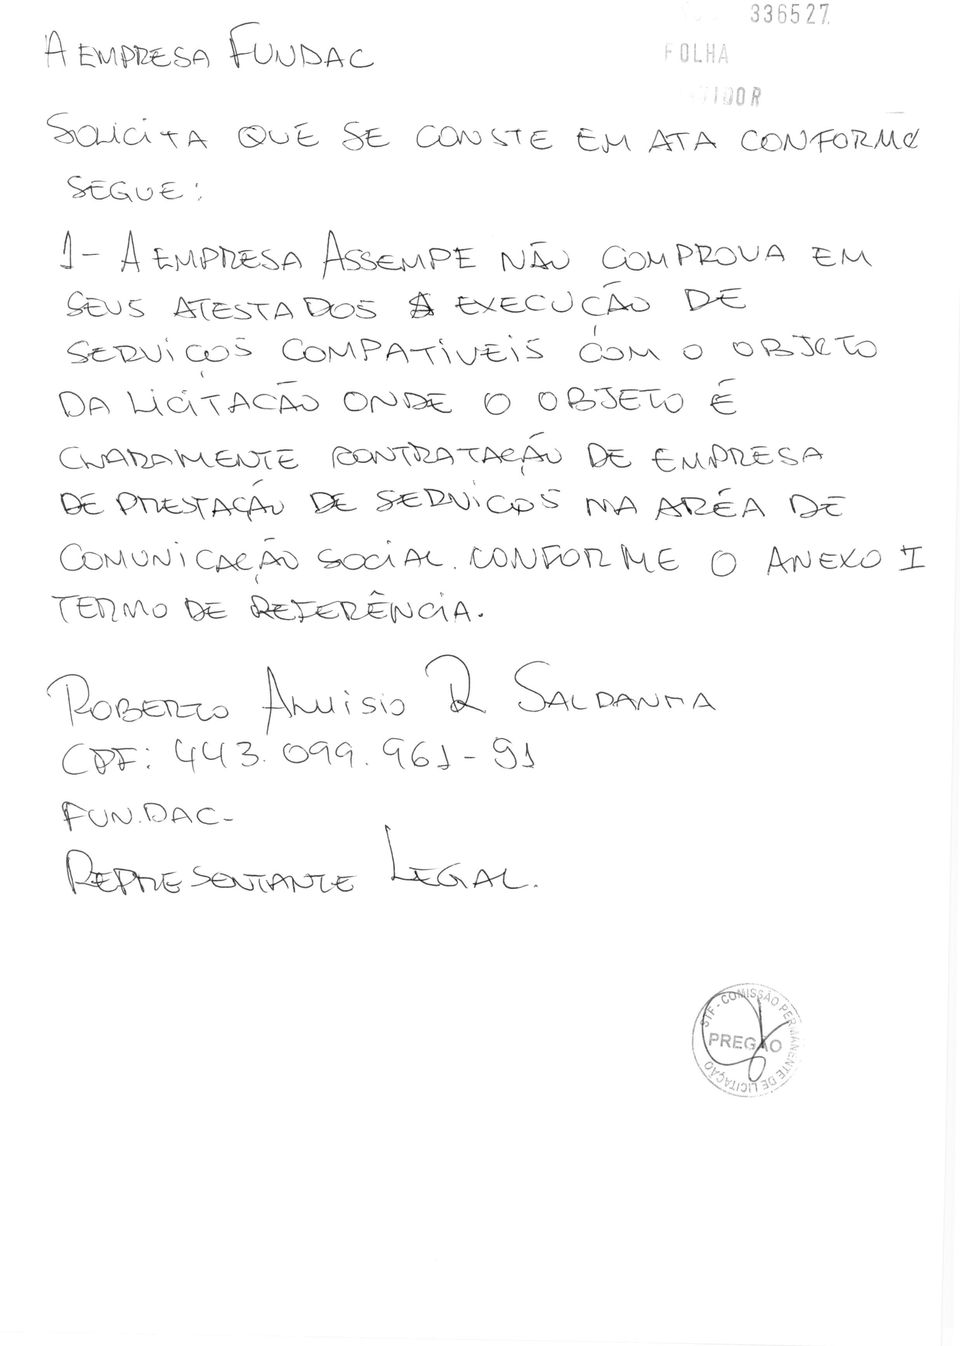 336527
FOLHA
A EMPRESA FUNDAC
SOLICITA QUE SE CONSTE EM ATA CONFORME
SEGUE:
1- A EMPRESA ASSEMPE NÃO COMPROVA EM
SEUS ATESTADOS A EXECUÇÃO DE
SERVIÇOS COMPATÍVEIS COM O OBJETO
DA LICITAÇÃO ONDE O OBJETO É
CLARAMENTE CONTRATAÇÃO DE EMPRESA
DE PRESTAÇÃO DE SERVIÇOS NA ARÉA DE
COMUNICAÇÃO SOCIAL. CONFORME O ANEXO I
TERMO DE REFERÊNCIA.
ROBERTO ALUISIO R SALDANHA
CPF: 443.099.961-91
FUN.DAC-
REPRESENTANTE LEGAL.
STF - COMISSÃO PERMANENTE DE LICITAÇÃO
PREGÃO